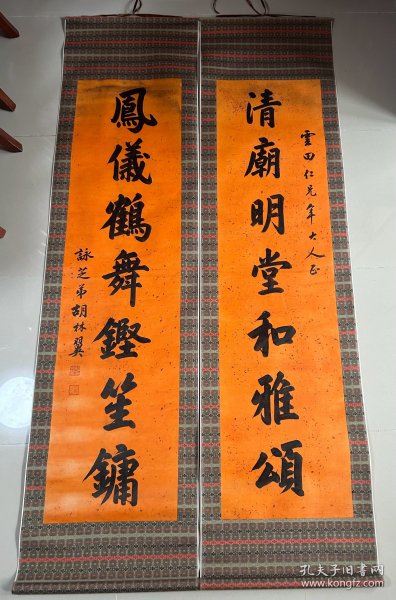 雲田仁兄年大人正
清廟明堂和雅頌
鳳儀鶴舞鏗笙鏞
詠芝弟胡林翼
孔夫子旧书网
www.kongfz.com